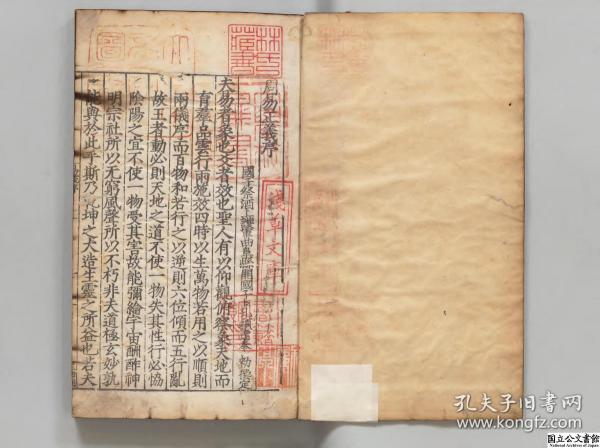 周易正義序
夫易者象也爻者效也聖人有以仰觀俯察象天地而
育羣品雲行雨施效四時以生萬物若用之以順則
兩儀序而百物和若行之以逆則六位傾而五行亂
故王者動必則天地之道不使一物失其性行必協
陰陽之宜不使一物受其害故能彌綸宇宙酬酢神
明宗社所以无窮風聲所以不朽非夫道極玄妙孰
能與於此乎斯乃乾坤之大造生靈之所益也若夫
淺草文庫
林氏藏書
孔夫子旧书网
国立公文書館
National Archives of Japan